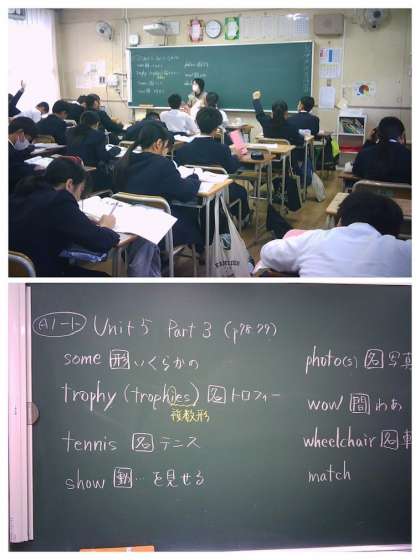 Aノート Unit 5 Part 3 (p78.79)
some 形 いくらかの
trophy (trophies) 名 トロフィー
複数形
tennis 名 テニス
show 動 …を見せる
photo(s) 名 写真
wow 間 わあ
wheelchair 名 車
match